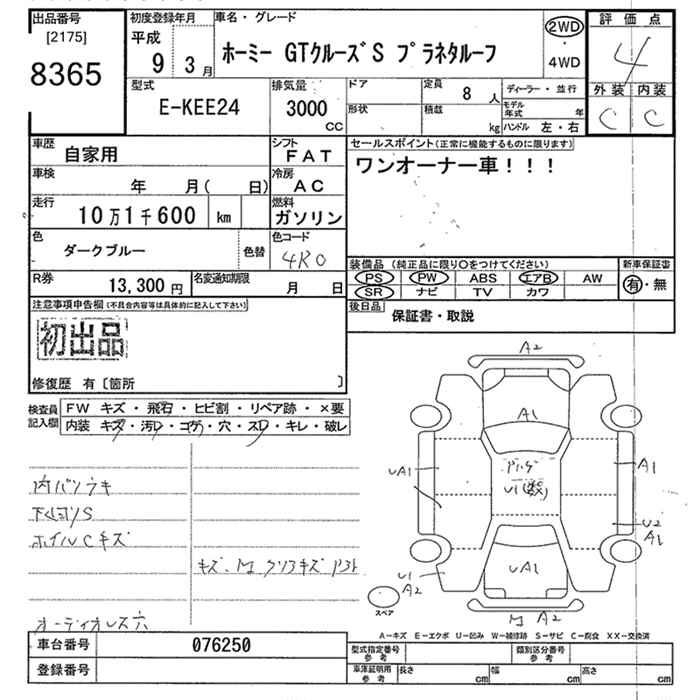 出品番号 初度登録年月 車名・グレード 評価点
[2175] 平成 2WD
8365 9 3月 ホーミー GTクルーズS プラネタルーフ ・ 4
4WD
型式 排気量 ドア 定員 8人 ディーラー・並行 外装 内装
E-KEE24 3000 CC 形状 積載 kg モデル年式 年 C C
ハンドル 左・右
車歴 自家用 シフト FAT セールスポイント(正常に機能するものに限ります)
ワンオーナー車!!!
車検 年 月( 日) 冷房 AC
走行 10万1千600 km 燃料 ガソリン
色 ダークブルー 色替 色コード 4R0
装備品 (純正品に限り○をつけてください) 新車保証書
R券 13,300円 名変通知期限 月 日 PS PW ABS エアB AW 有・無
SR ナビ TV カワ
注意事項申告欄(不具合内容等は具体的に記入して下さい) 後日品 保証書・取説
初出品
修復歴 有〔箇所 〕
検査員記入欄 FW キズ・飛石・ヒビ割・リペア跡・×要
内装 キズ・汚レ・コゲ・穴・スレ・キレ・破レ
A2
A1
UA1 A1
U1
内バツラキ
下回りS U2
A1
ホイルCキズ
UA1
U1
A2
スペア
M A2
A-キズ E-エクボ U-凹み W-補修跡 S-サビ C-腐食 XX-交換済
オーディオレス穴
車台番号 076250 型式指定番号 参考 類別区分番号 参考
登録番号 車庫証明用 参考 長さ cm 幅 cm 高さ cm